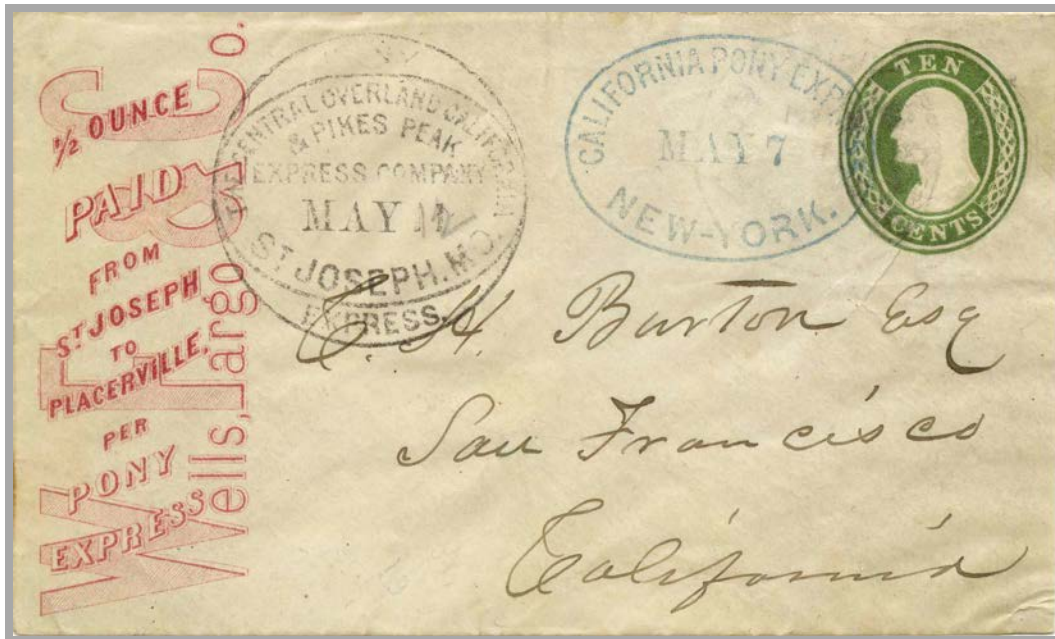 ½ OUNCE
PAID
FROM
ST JOSEPH
TO
PLACERVILLE,
PER
PONY
EXPRESS
W F & Co.
Wells, Fargo
THE CENTRAL OVERLAND CALIFORNIA
& PIKES PEAK
EXPRESS COMPANY
MAY
ST JOSEPH. MO.
EXPRESS.
CALIFORNIA PONY EXPR
MAY 7
NEW-YORK.
TEN
CENTS
Burton Esq
San Francisco
California